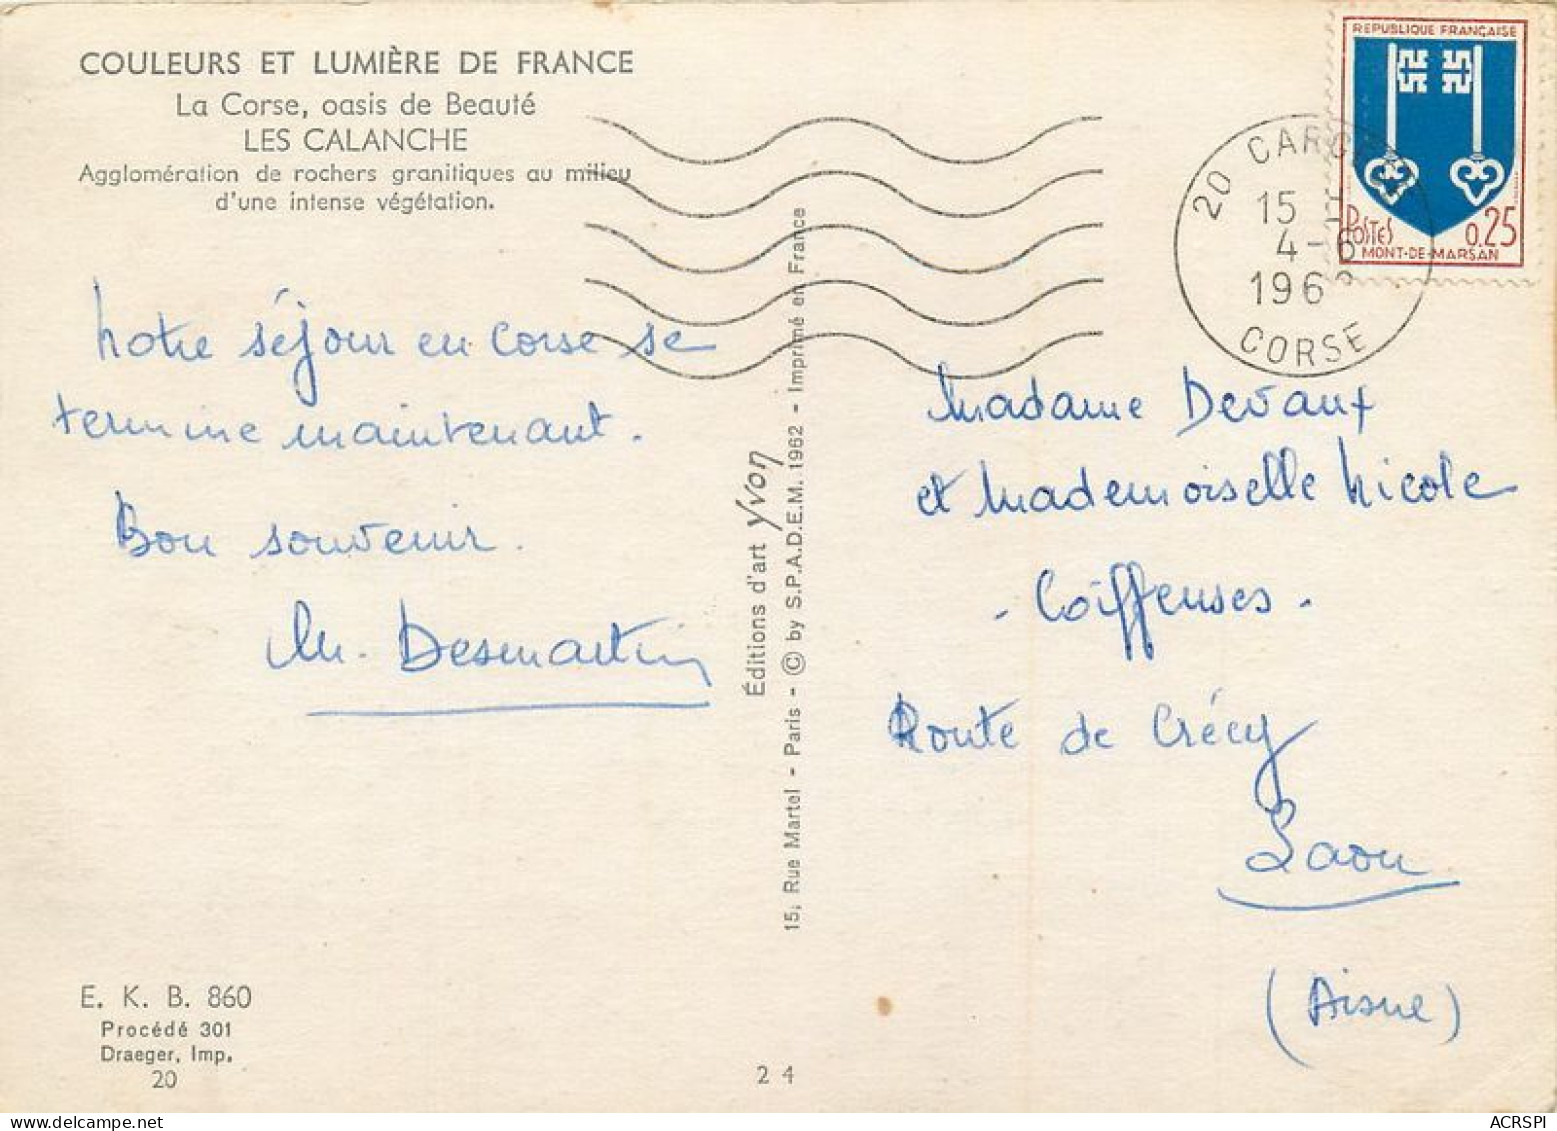 COULEURS ET LUMIÈRE DE FRANCE
La Corse, oasis de Beauté
LES CALANCHE
Agglomération de rochers granitiques au milieu
d'une intense végétation.
Notre séjour en Corse se
termine maintenant.
Bon souvenir.
M. Desmartin
E. K. B. 860
Procédé 301
Draeger, Imp.
20
Éditions d'art Yvon
15, Rue Martel - Paris - © by S.P.A.D.E.M. 1962 - Imprimé en France
2 4
REPUBLIQUE FRANÇAISE
POSTES 0.25
MONT-DE-MARSAN
20
15 H
4-6
196
CORSE
Madame Devaux
et Mademoiselle Nicole
- Coiffeuses -
Route de Crécy
Laon
(Aisne)
ACRSPI